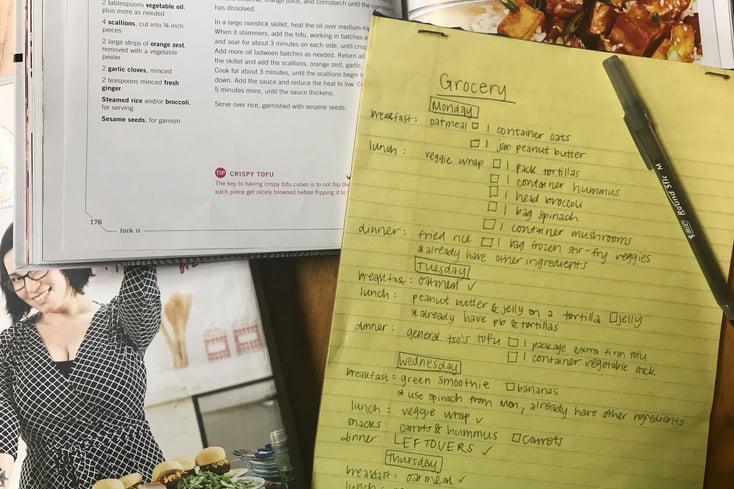 2 tablespoons vegetable oil,
plus more as needed
4 scallions, cut into ¾-inch
pieces
2 large strips of orange zest,
removed with a vegetable
peeler
2 garlic cloves, minced
2 teaspoons minced fresh
ginger
Steamed rice and/or broccoli,
for serving
Sesame seeds, for garnish
orange juice, and cornstarch until the
has dissolved.
In a large nonstick skillet, heat the oil over medium-hi
When it shimmers, add the tofu, working in batches
and sear for about 3 minutes on each side, until crisp
Add more oil between batches as needed. Return all
the skillet and add the scallions, orange zest, garlic,
Cook for about 3 minutes, until the scallions begin t
down. Add the sauce and reduce the heat to low. C
5 minutes more, until the sauce thickens.
Serve over rice, garnished with sesame seeds.
TIP CRISPY TOFU
The key to having crispy tofu cubes is to not flip the
each piece get nicely browned before flipping it to
176
fork it
Grocery
Monday
breakfast: oatmeal □ 1 container oats
□ 1 jar peanut butter
lunch: veggie wrap □ 1 pack tortillas
□ 1 container hummus
□ 1 head broccoli
□ 1 bag spinach
□ 1 container mushrooms
dinner: fried rice □ 1 bag frozen stir-fry veggies
*already have other ingredients
Tuesday
breakfast: oatmeal ✓
lunch: peanut butter & jelly on a tortilla □ jelly
*already have pb & tortillas
dinner: general tso's tofu □ 1 package extra firm tofu
□ 1 container vegetable stock
Wednesday
breakfast: green smoothie □ bananas
*use spinach from mon, already have other ingredients
lunch: veggie wrap ✓
snacks: carrots & hummus □ carrots
dinner: LEFTOVERS ✓
Thursday
breakfast: oatmeal ✓
lunch:
BIC Round Stic M